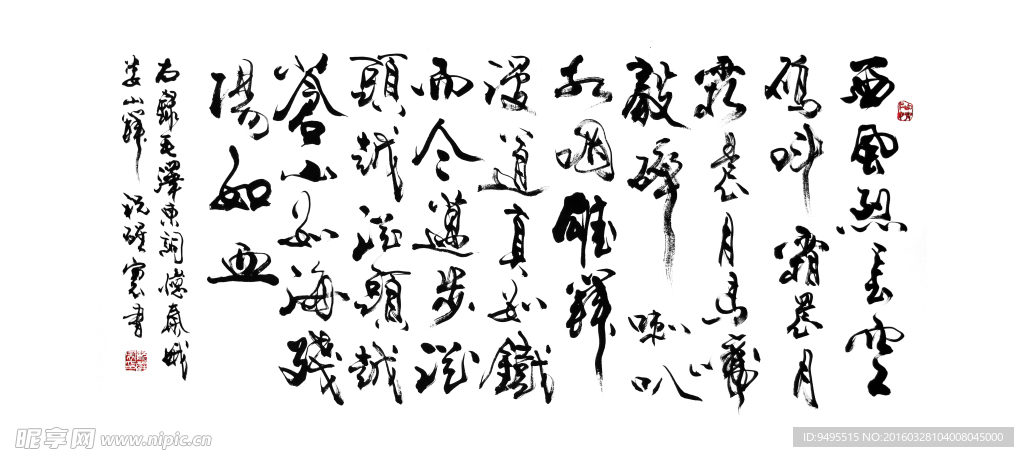 西風烈長空
鴈叫霜晨月
霜晨月馬蹄
聲碎喇叭
聲咽雄關
漫道真如鐵
而今邁步從
頭越從頭越
蒼山如海殘
陽如血
右錄毛澤東詞憶秦娥
婁山關 書
昵享网 www.nipic.cn
ID:9495515 NO:20160328104008045000